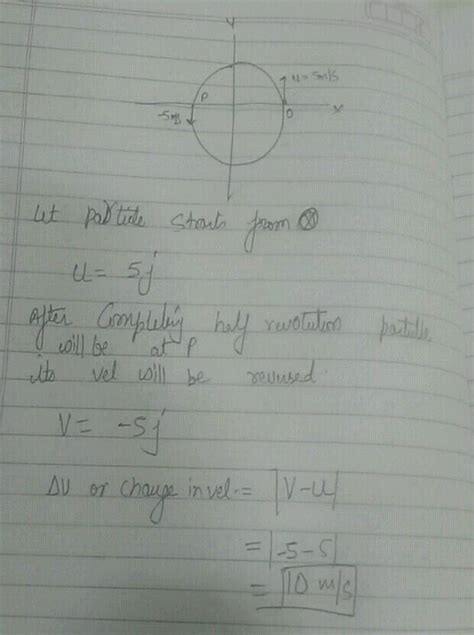 y
u = 5m/s
P
O
x
-5m/s
Let particle starts from O
u = 5j
After Completing half revolution particle
will be at P
its vel will be reversed
V = -5j
ΔU or change in vel. = |V-u|
= |-5-5|
= 10 m/s